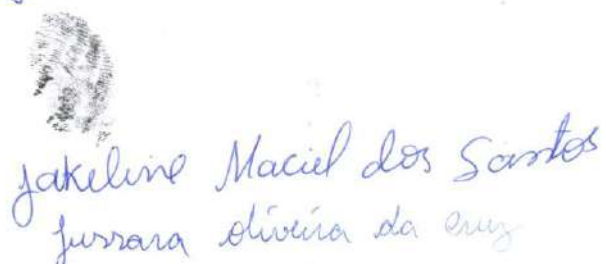 Jakeline Maciel dos Santos
Jussara Oliveira da Cruz